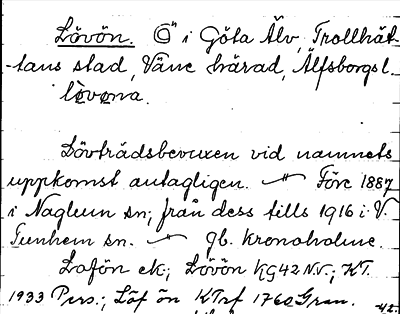 Lövön. Ö i Göta Älv, Trollhät-
-tans stad, Väne härad, Älfsborgs l.
lövøna.
Lövträdsbevuxen vid namnets
uppkomst antagligen. — Före 1887
i Naglum sn; från dess tills 1916 i V.
Tunhem sn. — Jb. Kronoholme.
Lafön ek; Lövön KG42 N.V.; KT.
1933 Pers.; Löf ön KTrf 1760 Gran.